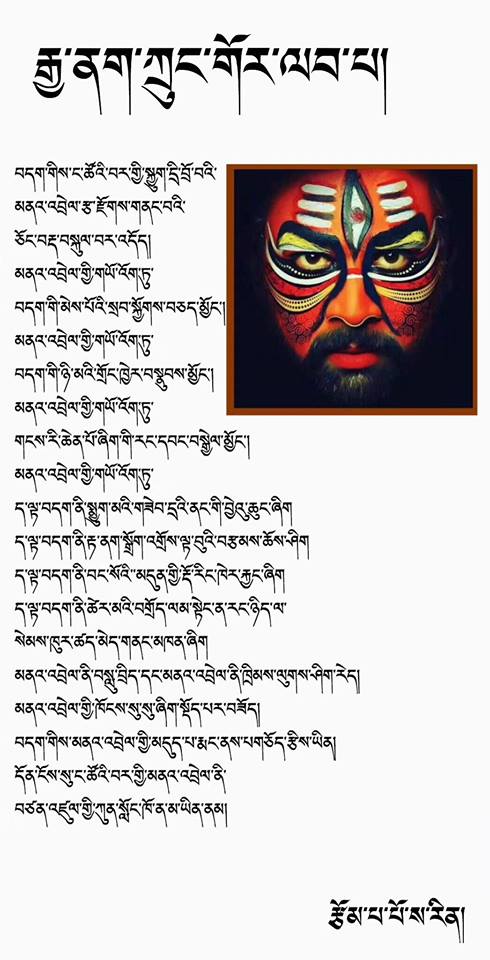 རྒྱ་ནག་ཀྲུང་གོར་ལབ་པ།
བདག་གིས་ང་ཚོའི་བར་གྱི་སྐྱུག་དྲི་བྲོ་བའི་
མནའ་འབྲེལ་རྩ་རྫོགས་གནང་བའི་
ཅོང་བརྡ་བསྐུལ་བར་འདོད།
མནའ་འབྲེལ་གྱི་གཡོ་འོག་ཏུ་
བདག་གི་མེས་པོའི་སྲབ་སྐྱོགས་བཅད་མྱོང་།
མནའ་འབྲེལ་གྱི་གཡོ་འོག་ཏུ་
བདག་གི་ཉི་མའི་གྲོང་ཁྱེར་བསྣུབས་མྱོང་།
མནའ་འབྲེལ་གྱི་གཡོ་འོག་ཏུ་
གངས་རི་ཆེན་པོ་ཞིག་གི་རང་དབང་བསྒྱེལ་མྱོང་།
མནའ་འབྲེལ་གྱི་གཡོ་འོག་ཏུ་
ད་ལྟ་བདག་ནི་སྨྱུག་མའི་གཟེབ་དྲའི་ནང་གི་བྱེའུ་ཆུང་ཞིག
ད་ལྟ་བདག་ནི་རྟ་ནག་སྒྲོག་འགྲོས་ལྟ་བུའི་བརྩམས་ཆོས་ཤིག
ད་ལྟ་བདག་ནི་བང་སོའི་མདུན་གྱི་རྡོ་རིང་ཁེར་རྐྱང་ཞིག
ད་ལྟ་བདག་ནི་ཚེར་མའི་བགྲོད་ལམ་སྟེང་ན་རང་ཉིད་ལ་
སེམས་ཁུར་ཚད་མེད་གནང་མཁན་ཞིག
མནའ་འབྲེལ་ནི་བསླུ་བྲིད་དང་མནའ་འབྲེལ་ནི་ཁྲིམས་ལུགས་ཤིག་རེད།
མནའ་འབྲེལ་གྱི་ཁོངས་སུ་སུ་ཞིག་སྡོད་པར་བཟོད།
བདག་གིས་མནའ་འབྲེལ་གྱི་མདུད་པ་རྨང་ནས་པགཅོད་རྩིས་ཡིན།
དོན་ངོས་སུ་ང་ཚོའི་བར་གྱི་མནའ་འབྲེལ་ནི་
བཙན་འཛུལ་གྱི་ཀུན་སློང་ཁོ་ན་མ་ཡིན་ནམ།
རྩོམ་པ་པོ་ས་རིན།